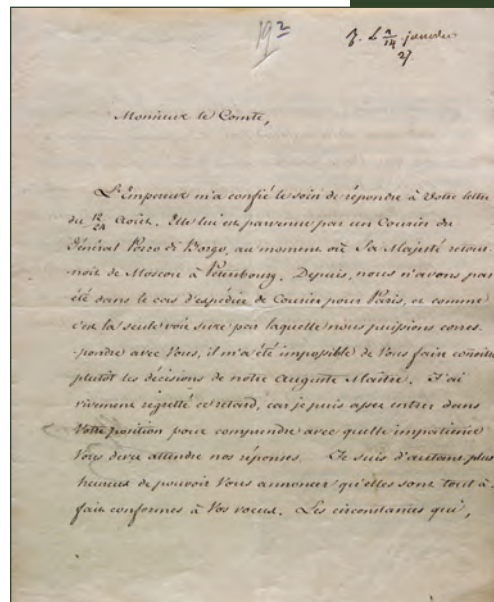 19 2
2/14 janvier
27
Monsieur le Comte,
L'Empereur m'a confié le soin de répondre à Votre lettre
du 12/24 Août. Elle lui est parvenue par un Courier du
Général Pozzo di Borgo, au moment où Sa Majesté retour-
noit de Moscou à Petersbourg. Depuis, nous n'avons pas
été dans le cas d'expédier de Courier pour Paris, et comme
c'est la seule voie sure par laquelle nous puissions corres-
-pondre avec Vous, il m'a été impossible de Vous faire connoître
plutôt les décisions de notre Auguste Maître. J'ai
vivement regretté ce retard, car je puis assez entrer dans
Votre position pour comprendre avec quelle impatience
Vous devez attendre nos réponses. Je suis d'autant plus
heureux de pouvoir Vous annoncer qu'elles sont tout-à-
fait conformes à Vos voeux. Les circonstances qui,